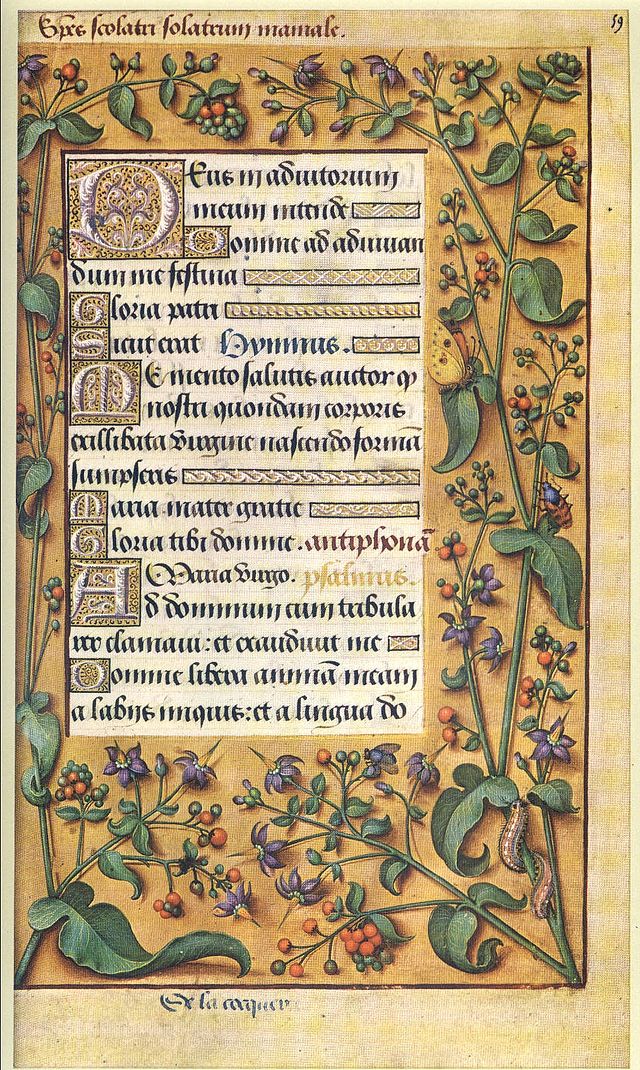 Sp̄es scolatri solatrum mamale.
59
Deus in adiutorium
meum intende
Domine ad adiuuan
dum me festina
Gloria patri
Sicut erat Hymnus.
Memento salutis auctor ꝙ
nostri quondam corporis
ex illibata virgine nascendo formā
sumpseris
Maria mater gratie
Gloria tibi domine. antiphonā
Maria virgo. psalmus.
Ad dominum cum tribula
rer clamaui: et exaudiuit me
Domine libera animā meam
a labijs iniquis: et a lingua do
De la cocquer